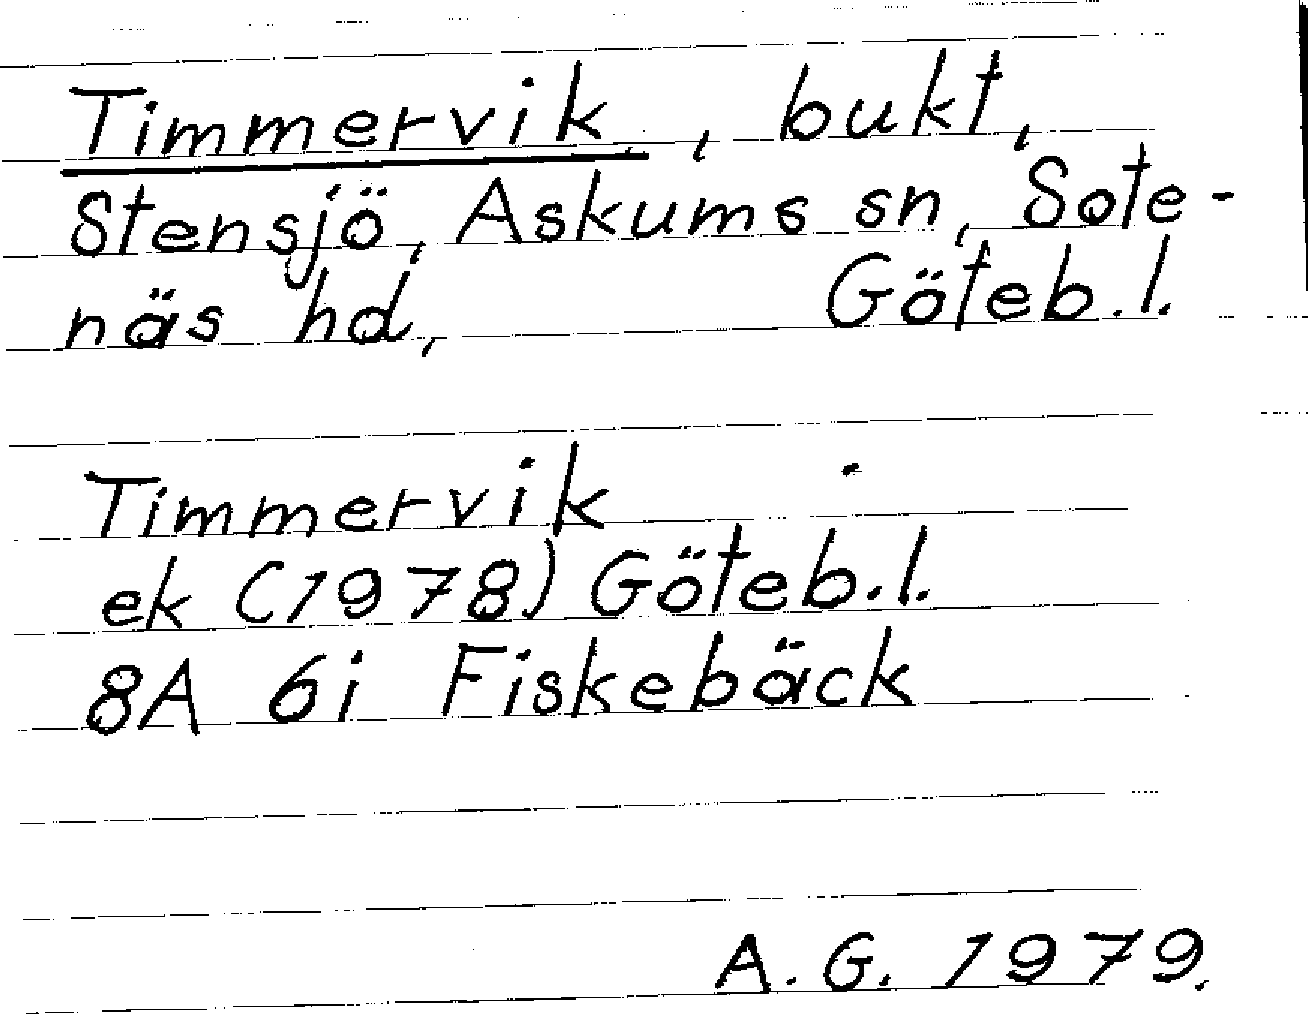 Timmervik, bukt,
Stensjö, Askums sn, Sote-
näs hd, Göteb.l.
Timmervik
ek (1978) Göteb.l.
8A 6i Fiskebäck
A.G. 1979.